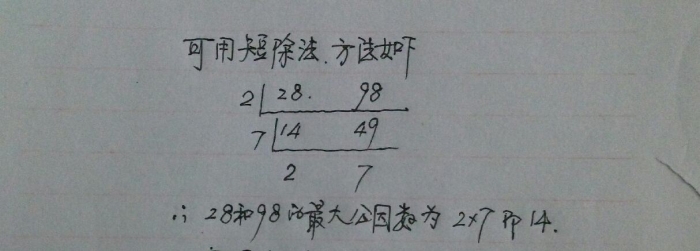 可用短除法.方法如下
2 28. 98
7 14 49
2 7
∴ 28和98的最大公因数为 2×7 即 14.